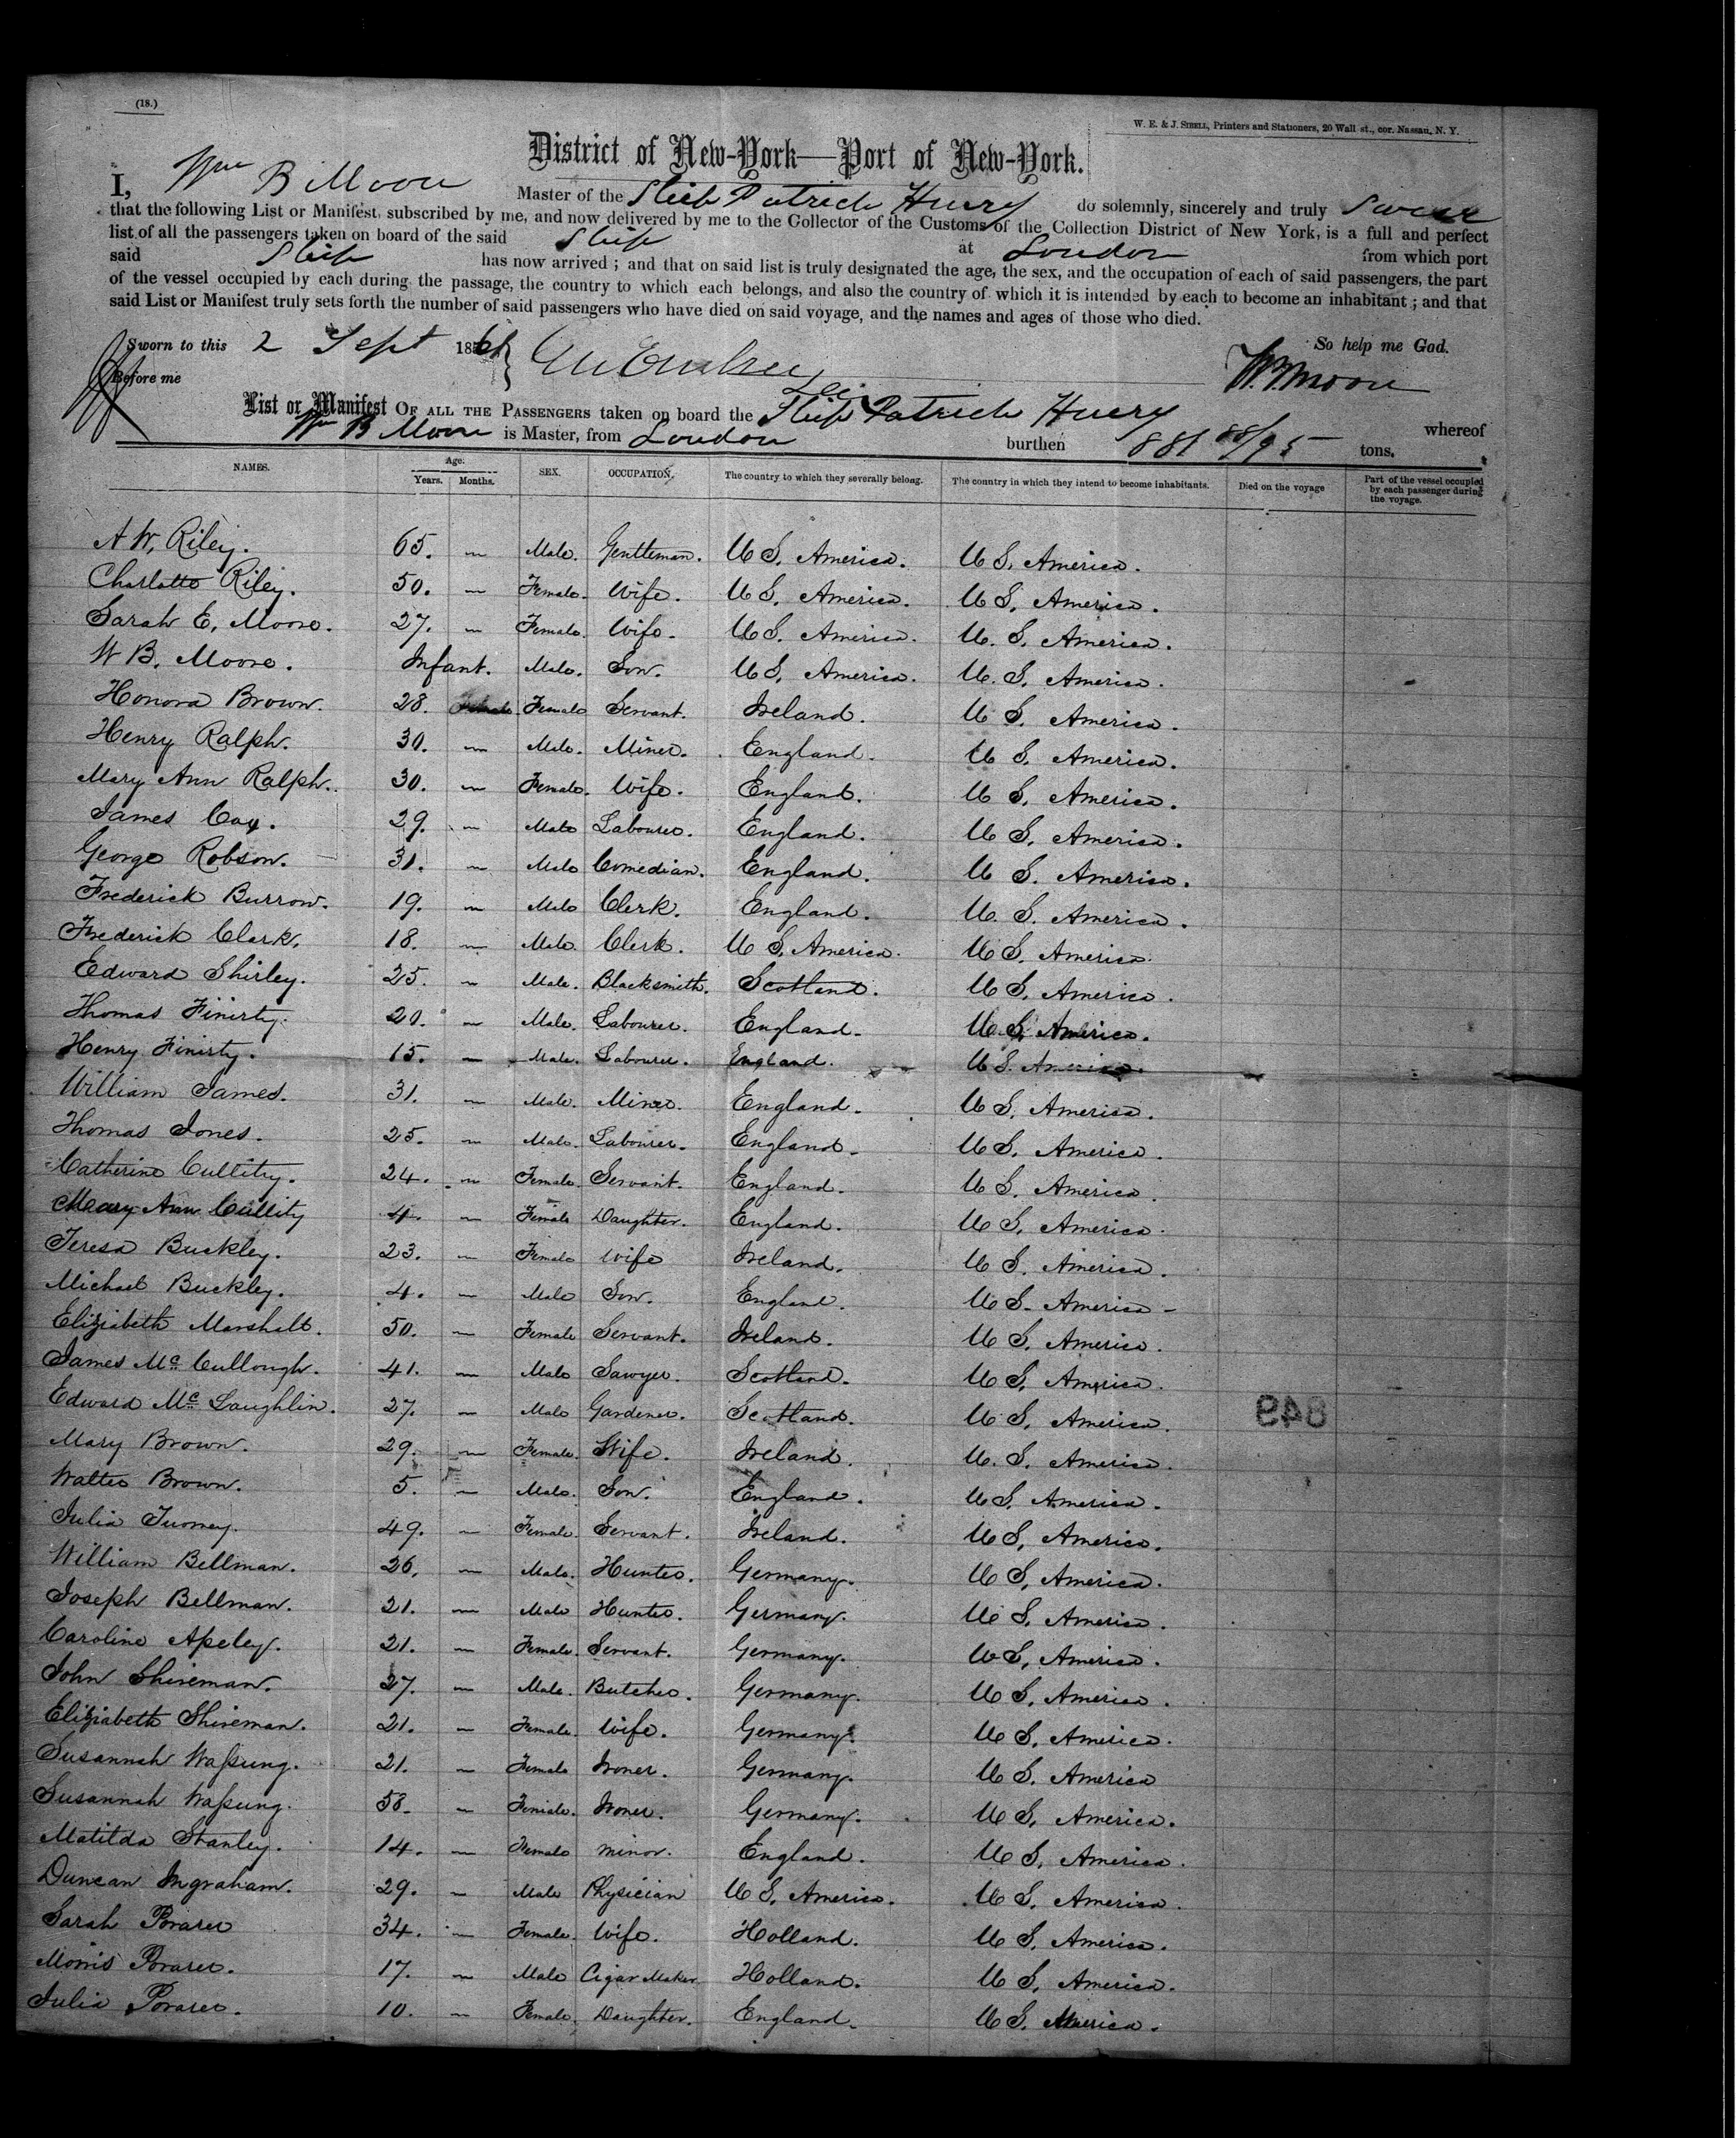 (18.)
W. E. & J. SIBELL, Printers and Stationers, 20 Wall st., cor. Nassau, N. Y.
District of New-York—Port of New-York.
I, Wm B Moore Master of the Ship Patrick Henry do solemnly, sincerely and truly Swear
that the following List or Manifest, subscribed by me, and now delivered by me to the Collector of the Customs of the Collection District of New York, is a full and perfect
list of all the passengers taken on board of the said Ship at London from which port
said Ship has now arrived ; and that on said list is truly designated the age, the sex, and the occupation of each of said passengers, the part
of the vessel occupied by each during the passage, the country to which each belongs, and also the country of which it is intended by each to become an inhabitant ; and that
said List or Manifest truly sets forth the number of said passengers who have died on said voyage, and the names and ages of those who died.
Sworn to this 2 Sept 1861 So help me God.
Before me W B Moore
List or Manifest OF ALL THE PASSENGERS taken on board the Ship Patrick Henry whereof
Wm B Moore is Master, from London burthen 881 88/95 tons.
NAMES. Age. Years. Months. SEX. OCCUPATION. The country to which they severally belong. The country in which they intend to become inhabitants. Died on the voyage Part of the vessel occupied by each passenger during the voyage.
A W, Riley. 65. — Male. Gentleman. U S, America. U S, America.
Charlotte Riley. 50. — Female. Wife. U S, America. U S, America.
Sarah E, Moore. 27. — Female. Wife. U S, America. U. S, America.
W B, Moore. Infant. Male. Son. U S, America. U. S, America.
Honora Brown. 28. Female Female Servant. Ireland. U S, America.
Henry Ralph. 30. — Male. Miner. England. U S, America.
Mary Ann Ralph. 30. — Female. Wife. England. U S, America.
James Cox. 29. — Male Labourer. England. U S, America.
George Robson. 31. — Male Comedian. England. U S. America.
Frederick Burrow. 19. — Male Clerk. England. U. S. America.
Frederick Clark, 18. — Male. Clerk. U S, America. U S, America.
Edward Shirley. 25. — Male. Blacksmith. Scotland. U S, America.
Thomas Finisty. 20. — Male. Labourer. England. U S, America.
Henry Finisty. 15. — Male. Labourer. England. U S. America.
William James. 31. — Male. Miner. England. U S, America.
Thomas Jones. 25. — Male. Labourer. England. U S, America.
Catherine Cullity. 24. — Female. Servant. England. U S, America.
Mary Ann Cullity 4. — Female Daughter. England. U S, America.
Teresa Buckley. 23. — Female Wife Ireland. U S. America.
Michael Buckley. 4. — Male Son. England. U S- America-
Eliziabeth Marshall. 50. — Female Servant. Ireland. U S, America.
James Mc Cullough. 41. — Male Sawyer. Scotland. U S, America.
Edward Mc Laughlin. 27. — Male Gardener. Scotland. U S, America.
849
Mary Brown. 29. — Female. Wife. Ireland. U. S, America.
Walter Brown. 5. — Male. Son. England. U S. America.
Julia Tuomey. 49. — Female. Servant. Ireland. U S, America.
William Bellman. 26. — Male. Hunter. Germany. U S, America.
Joseph Bellman. 21. — Male Hunter. Germany. U S, America.
Caroline Apeley. 21. — Female. Servant. Germany. U S, America.
John Shireman. 27. — Male. Butcher. Germany. U S, America.
Eliziabeth Shireman. 21. — Female. Wife. Germany. U S, America.
Susannah Waßung. 21. — Female Ironer. Germany. U S, America
Susannah Waßung. 58. — Female. Ironer. Germany. U S, America.
Matilda Stanley. 14. — Female minor. England. U S, America.
Duncan Ingraham. 29. — Male Physician U S, America. U S, America.
Sarah Porarer 34. — Female. Wife. Holland. U S, America.
Morris Porarer. 17. — Male Cigar Maker Holland. U S, America.
Julia Porarer. 10. — Female. Daughter. England. U S. America.